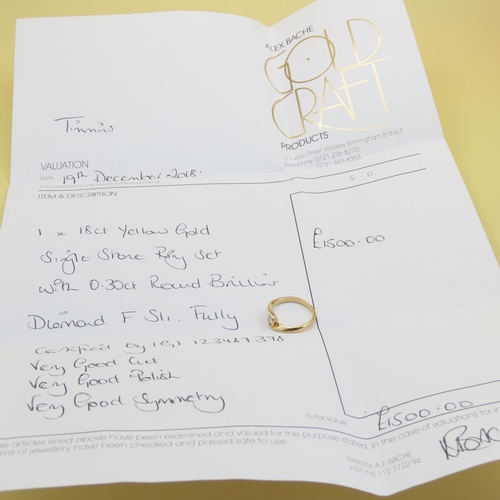 ALEX BACHE
GOLD
CRAFT
PRODUCTS
Street Hockley Birmingham B18
Telephone 0121 236 8270
0121 693 8353
Timmins
VALUATION
date 19th December 2018.
ITEM & DESCRIPTION
£ - p
1 x 18ct Yellow Gold
£1500.00
Single Stone Ring Set
with 0.30ct Round Brilliant
Diamond F SI1. Fully
certified by IGI
Very Good Cut
Very Good Polish
Very Good Symmetry
Total Value £1500.00
articles listed above have been examined and valued for the purpose stated. In the case of valuations for
items of jewellery have been checked and passed safe to use
Director A.F. BACHE